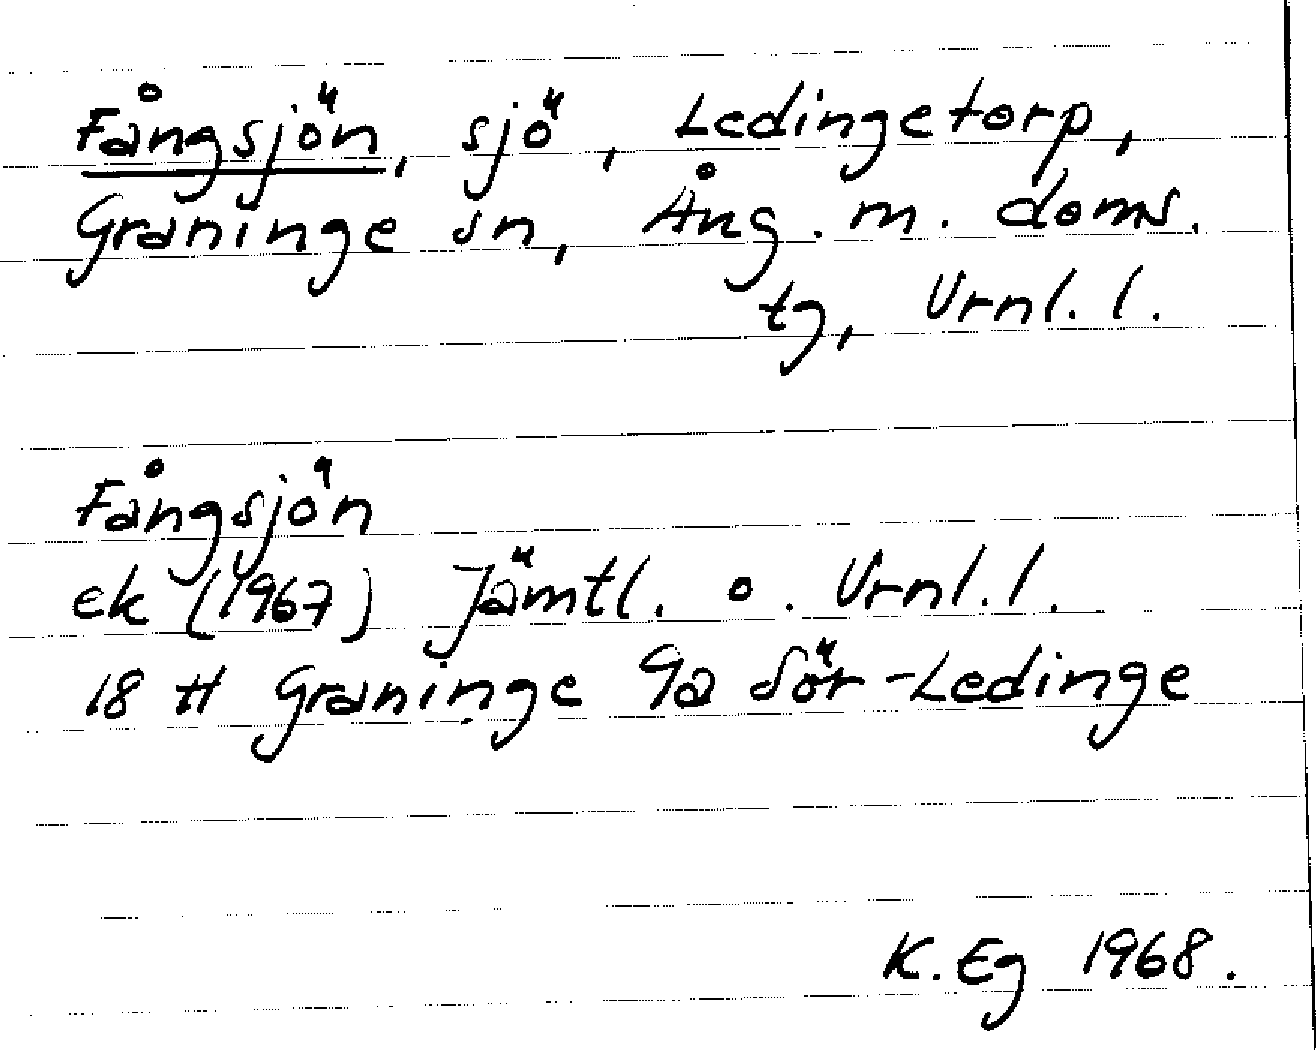 Fångsjön, sjö, Ledingetorp,
Graninge sn, Ång. m. doms.
tg, Vrnl. l.
Fångsjön
ek (1967) Jämtl. o. Vrnl. l.
18 H Graninge 9a Sör-Ledinge
K. Eg 1968.